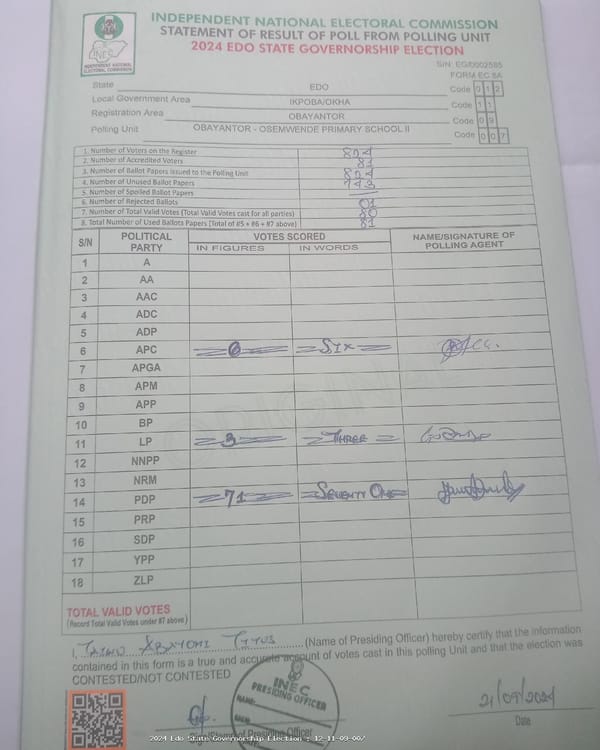 INDEPENDENT NATIONAL ELECTORAL COMMISSION
STATEMENT OF RESULT OF POLL FROM POLLING UNIT
2024 EDO STATE GOVERNORSHIP ELECTION
INEC
INDEPENDENT NATIONAL
ELECTORAL COMMISSION
S/N: EG/0002585
FORM EC 8A
State EDO Code 0 1 2
Local Government Area IKPOBA/OKHA Code 1 1
Registration Area OBAYANTOR Code 0 9
Polling Unit OBAYANTOR - OSEMWENDE PRIMARY SCHOOL II Code 0 0 7
1. Number of Voters on the Register 824
2. Number of Accredited Voters 81
3. Number of Ballot Papers Issued to the Polling Unit 824
4. Number of Unused Ballot Papers 743
5. Number of Spoiled Ballot Papers
6. Number of Rejected Ballots 01
7. Number of Total Valid Votes (Total Valid Votes cast for all parties) 80
8. Total Number of Used Ballots Papers (Total of #5 + #6 + #7 above) 81
S/N POLITICAL PARTY VOTES SCORED NAME/SIGNATURE OF POLLING AGENT
IN FIGURES IN WORDS
1 A
2 AA
3 AAC
4 ADC
5 ADP
6 APC 6 SIX
7 APGA
8 APM
9 APP
10 BP
11 LP 3 THREE
12 NNPP
13 NRM
14 PDP 71 SEVENTY ONE
15 PRP
16 SDP
17 YPP
18 ZLP
TOTAL VALID VOTES
(Record Total Valid Votes under #7 above)
I, TAIWO TITUS (Name of Presiding Officer) hereby certify that the information
contained in this form is a true and accurate account of votes cast in this polling Unit and that the election was
CONTESTED/NOT CONTESTED
INEC
PRESIDING OFFICER
NAME:
SIGN:
21/09/2024
Signature of Presiding Officer
Date
2024 Edo State Governorship Election : 12-11-09-007